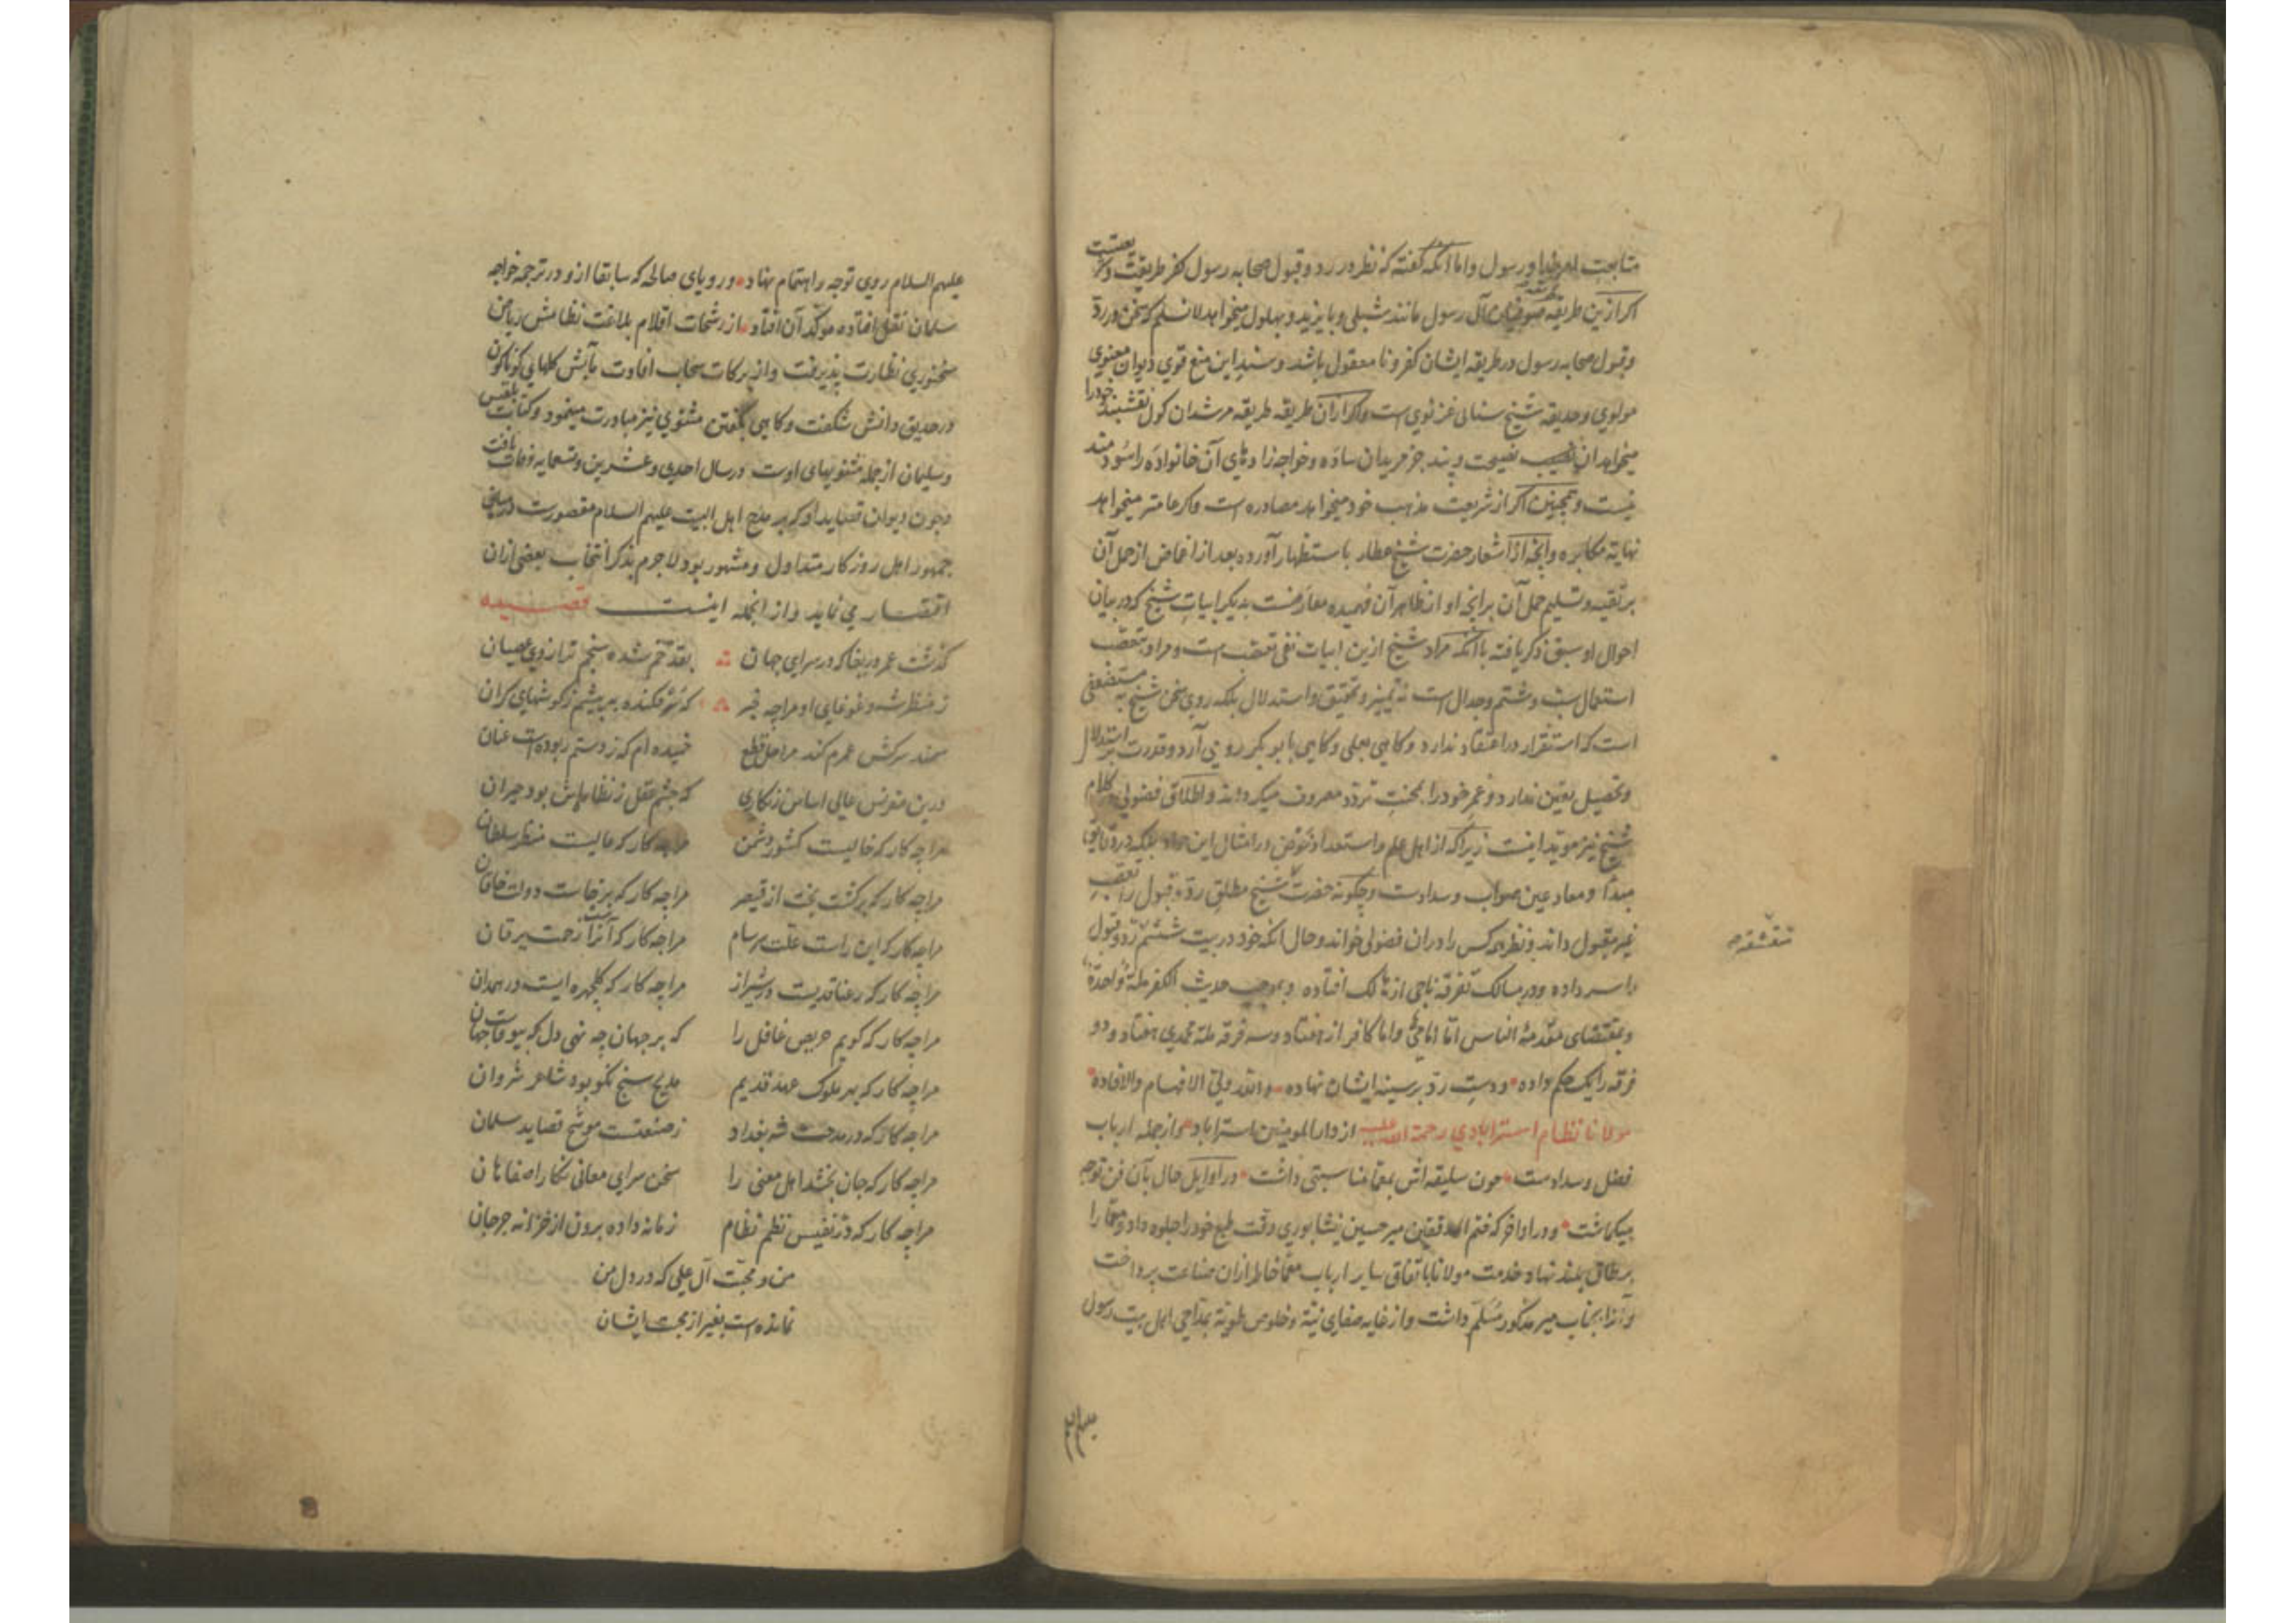 متابعت امر خدا و رسول و اما آنکه گفته که نظر در رد و قبول صحابه رسول کفر طریقت و
اکر ازین طریقه صوفیان آل رسول مانند شبلی و بایزید و بهلول میخواهد لانسلم که سخن در رد
و قبول صحابه رسول در طریقه ایشان کفر و نا معقول باشد و سند این منع قوی دیوان معنوی
مولوی و حدیقه شیخ سنائی غزنوی است و اکر ازان طریقه طریقه مرشدان کول نقشبند خود را
میخواهد آن نصیحت و پند جز مریدان ساده و خواجه زادهای آن خانواده را سودمند
نیست و همچنین اکر از شریعت مذهب خود میخواهد مصادره است و اکر عامتر میخواهد
نهایته مکابره و آنچه از اشعار حضرت شیخ عطار باستظهار آورده بعد از اغماض از حمل آن
بر تقیه و تسلیم حمل آن بر انچه او از ظاهر آن فهمیده معارضست بدیکر ابیات شیخ که در بیان
احوال او سبق ذکر یافته با آنکه مراد شیخ ازین ابیات نفی تعصب است و مراد بتعصب
استعمال سب و شتم و جدال است نه تمییز و تحقیق و استدلال بلکه روی سخن شیخ به مستضعفی
است که استقرار در اعتقاد ندارد و کاهی بعلی و کاهی بابو بکر روی آرد و قدرت بر استدلال
و تحصیل یقین ندارد و عمر خود را بمحنت تردد مصروف میکرداند و اطلاق فضولی در کلام
شیخ نیز مؤید اینست زیرا که از اهل علم و استعداد خوض در امثال این مواد بلکه در دقایق
مبدأ و معاد عین صواب و سدادست و چکونه حضرت شیخ مطلق رد و قبول را تعصب
غیر مقبول داند و نظر هر کس را دران فضولی خواند و حال آنکه خود در بیت ششم رد و قبول
را سر داده و در مسالک تفرقه ناجی از هالک افتاده و بموجب حدیث الکفر ملة واحدة
و بمقتضای مقدمه الناس اما ناجی و اما کافر از هفتاد و سه فرقه ملة محمدی هفتاد و دو
فرقه را یک حکم داده و دست رد بر سینه ایشان نهاده والله ولی الافهام والافاده
مولانا نظام استرابادی رحمة الله علیه از دار المومنین استراباد و از جمله ارباب
فضل و سدادست چون سلیقه اش بمعما مناسبتی داشت در اوایل حال بآن فن توجه
میکماشت و در اواخر که فخم المدققین میر حسین نیشابوری دقت طبع خود را جلوه داد و معما را
بر طاق بلند نهاد خدمت مولانا باتفاق سایر ارباب معما خاطر ازان صناعت پرداخت
و آنرا بجناب میر مذکور مسلم داشت و از غایه صفای نیة و خلوص طویة بمداحی اهل بیت رسول
علیهم السلام
علیهم السلام روی توجه و اهتمام نهاد و رویای صالحه که سابقا ازو در ترجمه خواجه
سلمان نقل افتاده موکد آن افتاد از رشحات اقلام بلاغت نظامش ریاض
سخنوری نظارت پذیرفت و از برکات سحاب افادت مآبش کلهای کوناکون
در حدیقه دانش شکفت و کاهی بکفتن مثنوی نیز مبادرت مینمود و کتاب بلقیس
و سلیمان از جمله مثنویهای اوست در سال احدی و عشرین و تسعمایه وفات یافت
و چون دیوان قصاید او که بر مدح اهل البیت علیهم السلام مقصورست در میان
جمهور اهل روزکار متداول و مشهور بود لاجرم بذکر انتخاب بعضی ازان
اقتصار می نماید و از انجمله اینست قصیده
کذشت عمر دریغا که در سرای جهان بقد خم شده سنجم ترازوی عصیان
ز منظر شه و غوغایی او مرا چه خبر که تیز فکنده به پیشم ز کوشهای کران
سمند سرکش عمرم کند مراحل قطع خمیده ام که ز دستم ربوده است عنان
درین مقرنس عالی اساس زنکاری که چشم عقل ز نظارهاش بود حیران
مرا چه کار که خالیست کشور دشمن مرا چه کار که عالیست منظر سلطان
مرا چه کار که برکشت بخت از قیصر مرا چه کار که برخاست دولت خاقان
مرا چه کار که این راست علت برسام مرا چه کار که آنراست زحمت یرقان
مرا چه کار که رعنا قدیست در شیراز مرا چه کار که کلچهره ایست در همدان
مرا چه کار که کویم حریص غافل را که بر جهان چه نهی دل که بیوفاست جهان
مرا چه کار که بهر ملوک عهد قدیم مدیح سنج نکو بود شاعر شروان
مرا چه کار که در مدحت شه بغداد ز صنعتست موشح قصاید سلمان
مرا چه کار که جان بخشد اهل معنی را سخن سرایی معانی نکار اصفاهان
مرا چه کار که در نفیس نظم نظام زمانه داده برون از خزانه جرجان
من و محبت آل علی که در دل من
نمانده است بغیر از محبت ایشان